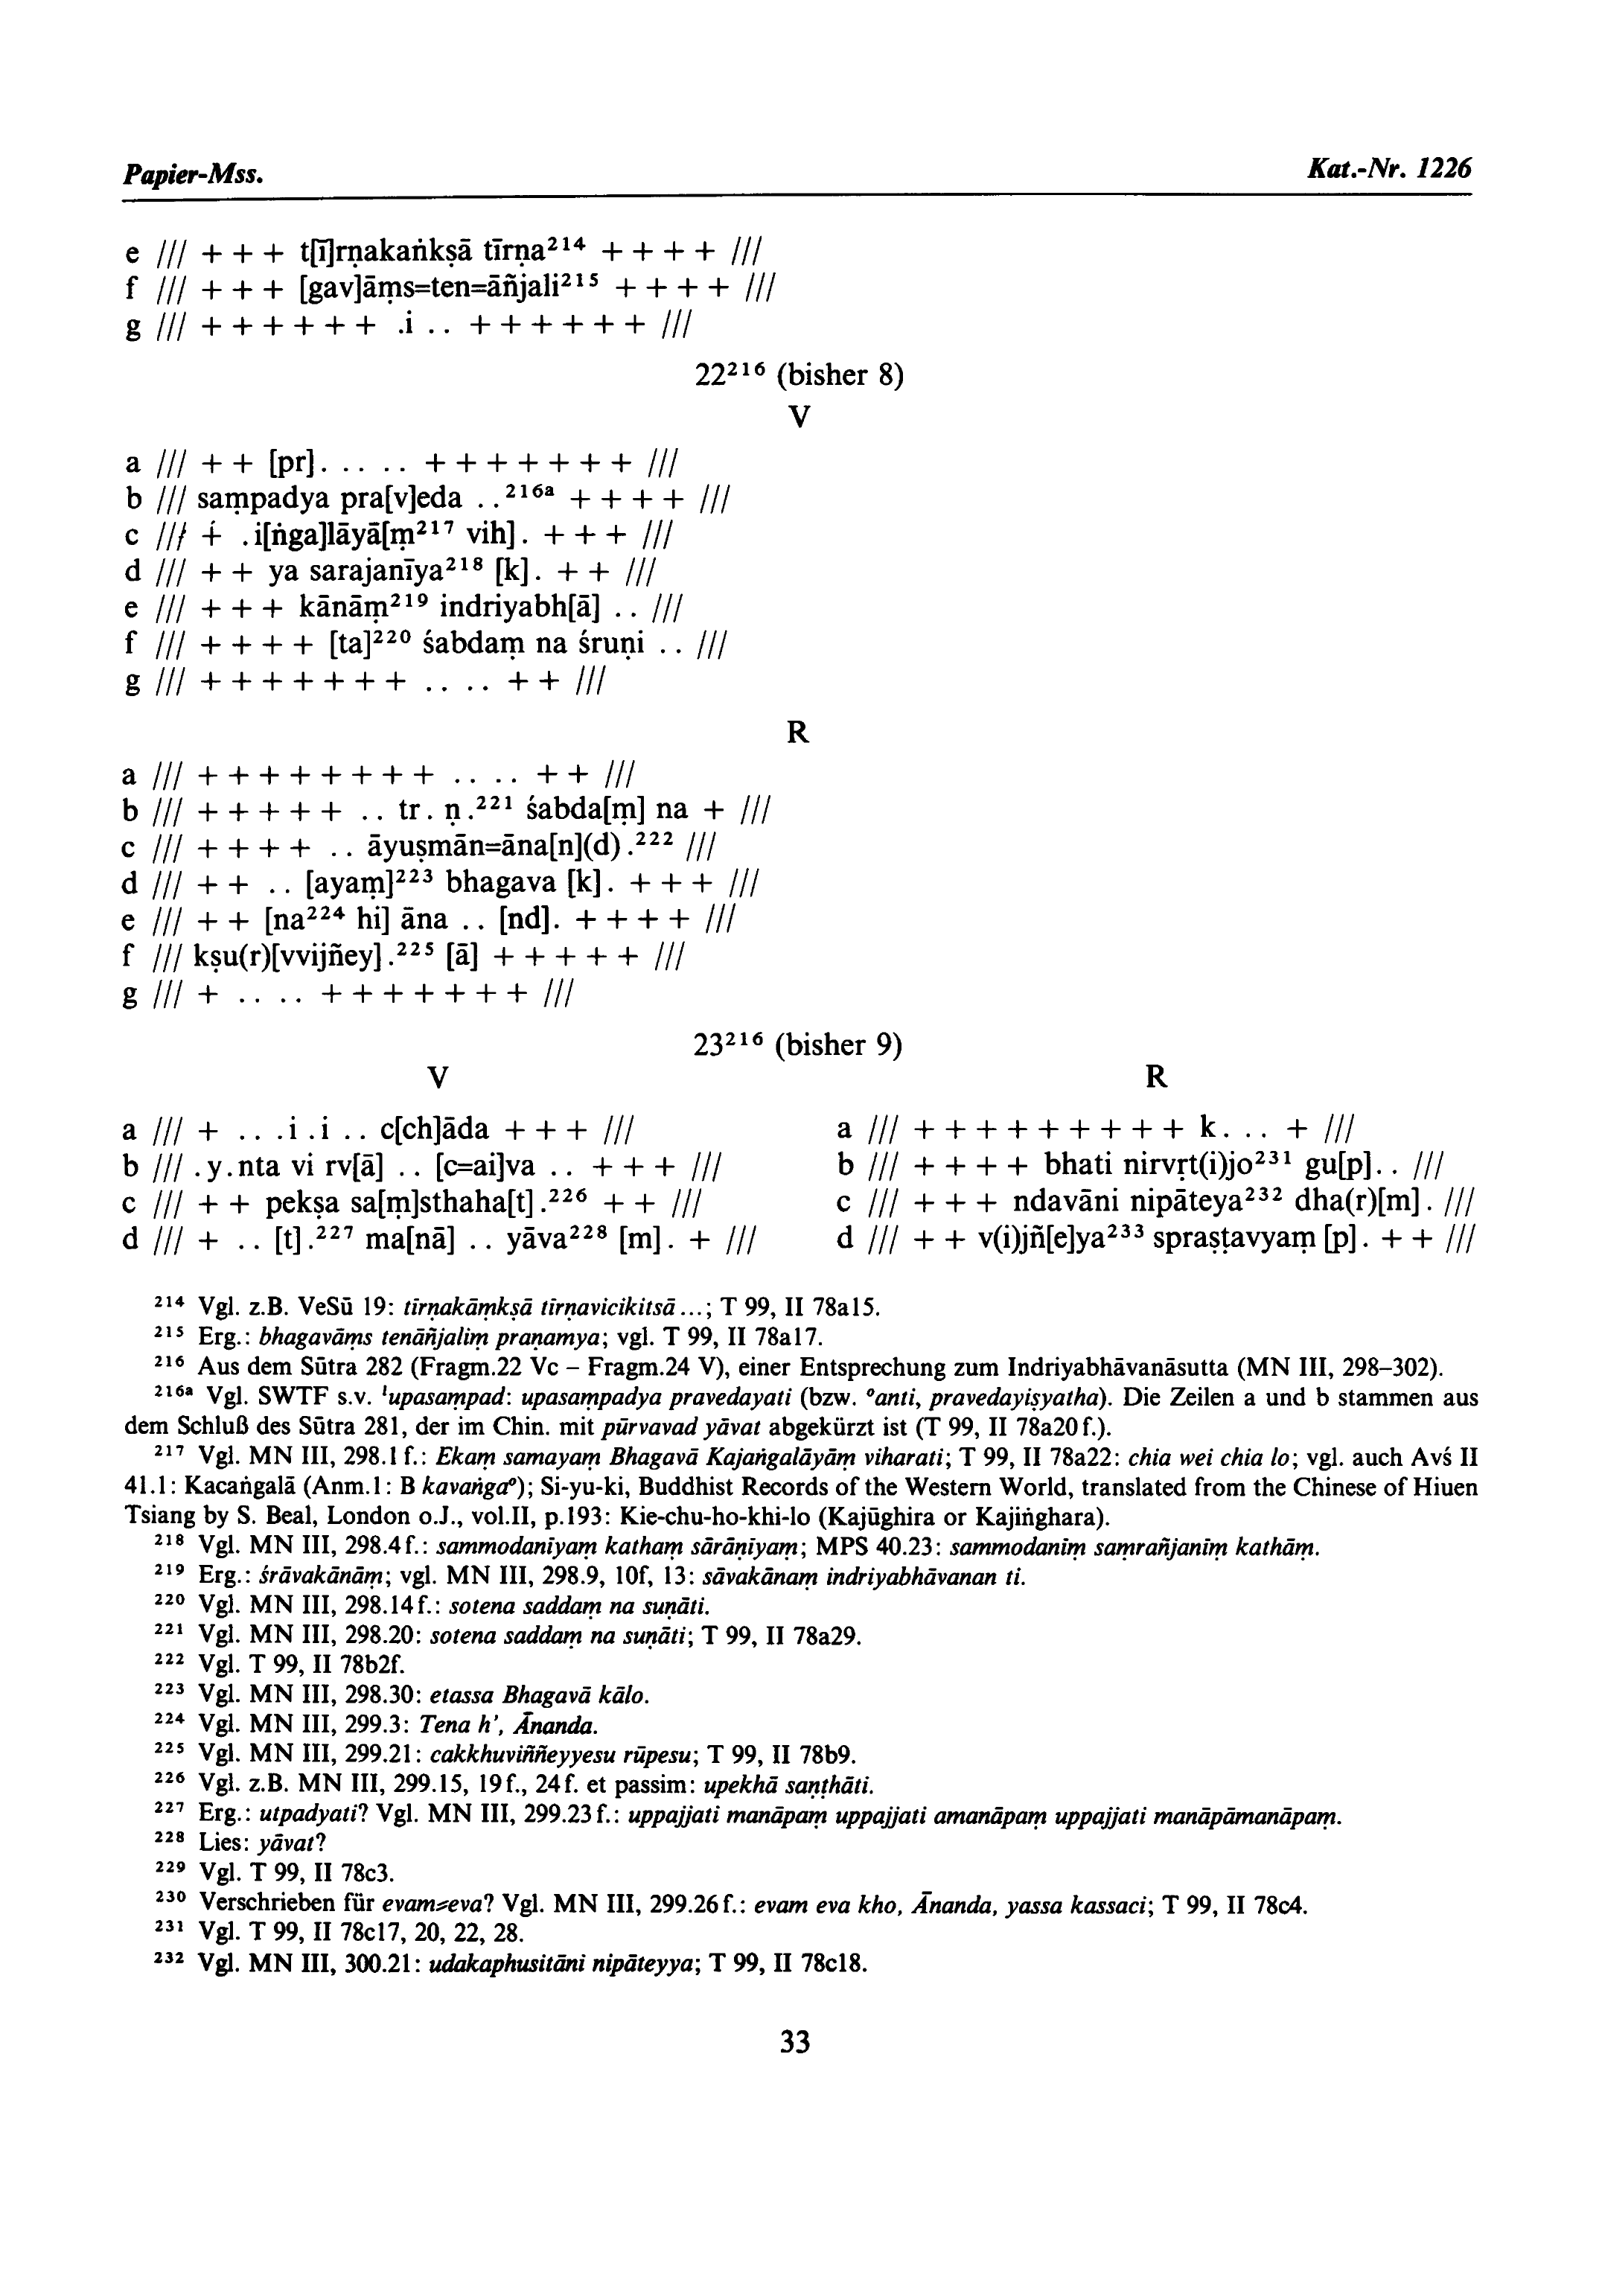 Papier-Mss. Kat.-Nr. 1226
e /// + + + t[ī]rṇakaṅkṣā tīrṇa²¹⁴ + + + + ///
f /// + + + [gav]āṃs=ten=āñjali²¹⁵ + + + + ///
g /// + + + + + + .i .. + + + + + + ///
22²¹⁶ (bisher 8)
V
a /// + + [pr]. .. .. + + + + + + + ///
b /// saṃpadya pra[v]eda ..²¹⁶ᵃ + + + + ///
c /// + .i[ṅga]lāyā[ṃ²¹⁷ vih]. + + + ///
d /// + + ya sarajanīya²¹⁸ [k]. + + ///
e /// + + + kānāṃ²¹⁹ indriyabh[ā] .. ///
f /// + + + + [ta]²²⁰ śabdaṃ na śruṇi .. ///
g /// + + + + + + + .. .. + + ///
R
a /// + + + + + + + + .. .. + + ///
b /// + + + + + .. tr. ṇ.²²¹ śabda[ṃ] na + ///
c /// + + + + .. āyuṣmān=āna[n](d).²²² ///
d /// + + .. [ayaṃ]²²³ bhagava [k]. + + + ///
e /// + + [na²²⁴ hi] āna .. [nd]. + + + + ///
f /// kṣu(r)[vvijñey].²²⁵ [ā] + + + + + ///
g /// + .. .. + + + + + + + ///
23²¹⁶ (bisher 9)
V
a /// + .. ..i .i .. c[ch]āda + + + ///
b /// .y.nta vi rv[ā] .. [c=ai]va .. + + + ///
c /// + + pekṣa sa[ṃ]sthaha[t].²²⁶ + + ///
d /// + .. [t].²²⁷ ma[nā] .. yāva²²⁸ [m]. + ///
R
a /// + + + + + + + + + k. .. + ///
b /// + + + + bhati nirvṛt(i)jo²³¹ gu[p].. ///
c /// + + + ndavāni nipāteya²³² dha(r)[m]. ///
d /// + + v(i)jñ[e]ya²³³ spraṣṭavyaṃ [p]. + + ///
²¹⁴ Vgl. z.B. VeSū 19: tīrṇakāṃkṣā tīrṇavicikitsā...; T 99, II 78a15.
²¹⁵ Erg.: bhagavāṃs tenāñjaliṃ praṇamya; vgl. T 99, II 78a17.
²¹⁶ Aus dem Sūtra 282 (Fragm.22 Vc – Fragm.24 V), einer Entsprechung zum Indriyabhāvanāsutta (MN III, 298–302).
²¹⁶ᵃ Vgl. SWTF s.v. ¹upasaṃpad: upasaṃpadya pravedayati (bzw. °anti, pravedayiṣyatha). Die Zeilen a und b stammen aus
dem Schluß des Sūtra 281, der im Chin. mit pūrvavad yāvat abgekürzt ist (T 99, II 78a20f.).
²¹⁷ Vgl. MN III, 298.1f.: Ekaṃ samayaṃ Bhagavā Kajaṅgalāyāṃ viharati; T 99, II 78a22: chia wei chia lo; vgl. auch Avś II
41.1: Kacaṅgalā (Anm.1: B kavaṅga°); Si-yu-ki, Buddhist Records of the Western World, translated from the Chinese of Hiuen
Tsiang by S. Beal, London o.J., vol.II, p.193: Kie-chu-ho-khi-lo (Kajūghira or Kajiṅghara).
²¹⁸ Vgl. MN III, 298.4f.: sammodaniyaṃ kathaṃ sārāṇiyaṃ; MPS 40.23: sammodanīṃ saṃrañjanīṃ kathāṃ.
²¹⁹ Erg.: śrāvakānāṃ; vgl. MN III, 298.9, 10f, 13: sāvakānaṃ indriyabhāvanan ti.
²²⁰ Vgl. MN III, 298.14f.: sotena saddaṃ na suṇāti.
²²¹ Vgl. MN III, 298.20: sotena saddaṃ na suṇāti; T 99, II 78a29.
²²² Vgl. T 99, II 78b2f.
²²³ Vgl. MN III, 298.30: etassa Bhagavā kālo.
²²⁴ Vgl. MN III, 299.3: Tena h', Ānanda.
²²⁵ Vgl. MN III, 299.21: cakkhuviññeyyesu rūpesu; T 99, II 78b9.
²²⁶ Vgl. z.B. MN III, 299.15, 19f., 24f. et passim: upekhā saṇṭhāti.
²²⁷ Erg.: utpadyati? Vgl. MN III, 299.23f.: uppajjati manāpaṃ uppajjati amanāpaṃ uppajjati manāpāmanāpaṃ.
²²⁸ Lies: yāvat?
²²⁹ Vgl. T 99, II 78c3.
²³⁰ Verschrieben für evam=eva? Vgl. MN III, 299.26f.: evam eva kho, Ānanda, yassa kassaci; T 99, II 78c4.
²³¹ Vgl. T 99, II 78c17, 20, 22, 28.
²³² Vgl. MN III, 300.21: udakaphusitāni nipāteyya; T 99, II 78c18.
33